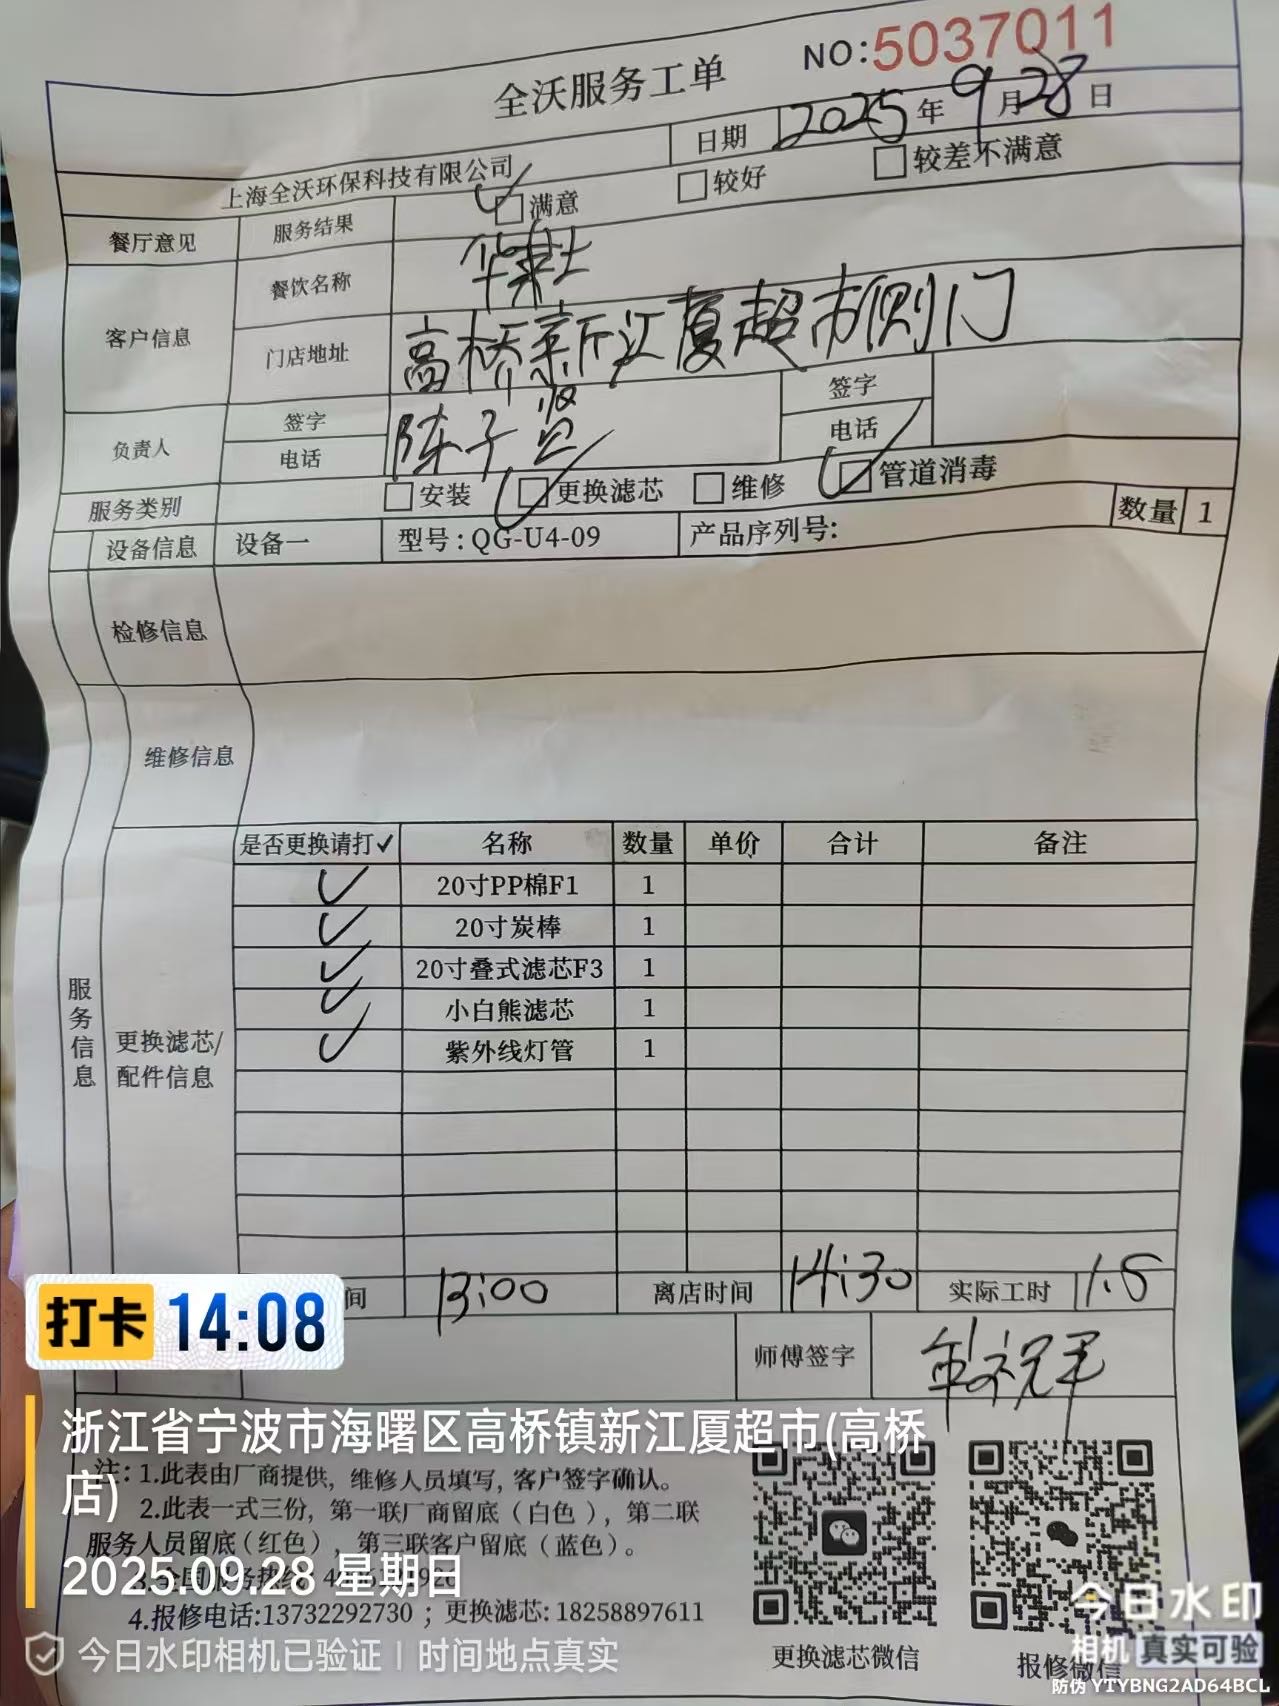 NO:5037011
全沃服务工单
日期 2025 年 9 月 28 日
上海全沃环保科技有限公司
餐厅意见 服务结果 ✓ 满意 较好 较差不满意
客户信息 餐饮名称 华莱士
门店地址 高桥新江厦超市侧门
负责人 签字 陈子贤 签字
电话 电话
服务类别 安装 ✓ 更换滤芯 维修 ✓ 管道消毒
设备信息 设备一 型号:QG-U4-09 产品序列号: 数量 1
检修信息
维修信息
服务信息
更换滤芯/
配件信息
是否更换请打✓ 名称 数量 单价 合计 备注
✓ 20寸PP棉F1 1
✓ 20寸炭棒 1
✓ 20寸叠式滤芯F3 1
✓ 小白熊滤芯 1
✓ 紫外线灯管 1
间 13:00 离店时间 14:30 实际工时 1.5
师傅签字
打卡 14:08
浙江省宁波市海曙区高桥镇新江厦超市(高桥
店)
2025.09.28 星期日
注: 1.此表由厂商提供, 维修人员填写, 客户签字确认。
2.此表一式三份, 第一联厂商留底（白色）, 第二联
服务人员留底(红色), 第三联客户留底（蓝色）。
4.报修电话:13732292730 ; 更换滤芯: 18258897611
更换滤芯微信
报修微信
今日水印相机已验证 | 时间地点真实
今日水印
相机 真实可验
防伪 YTYBNG2AD64BCL